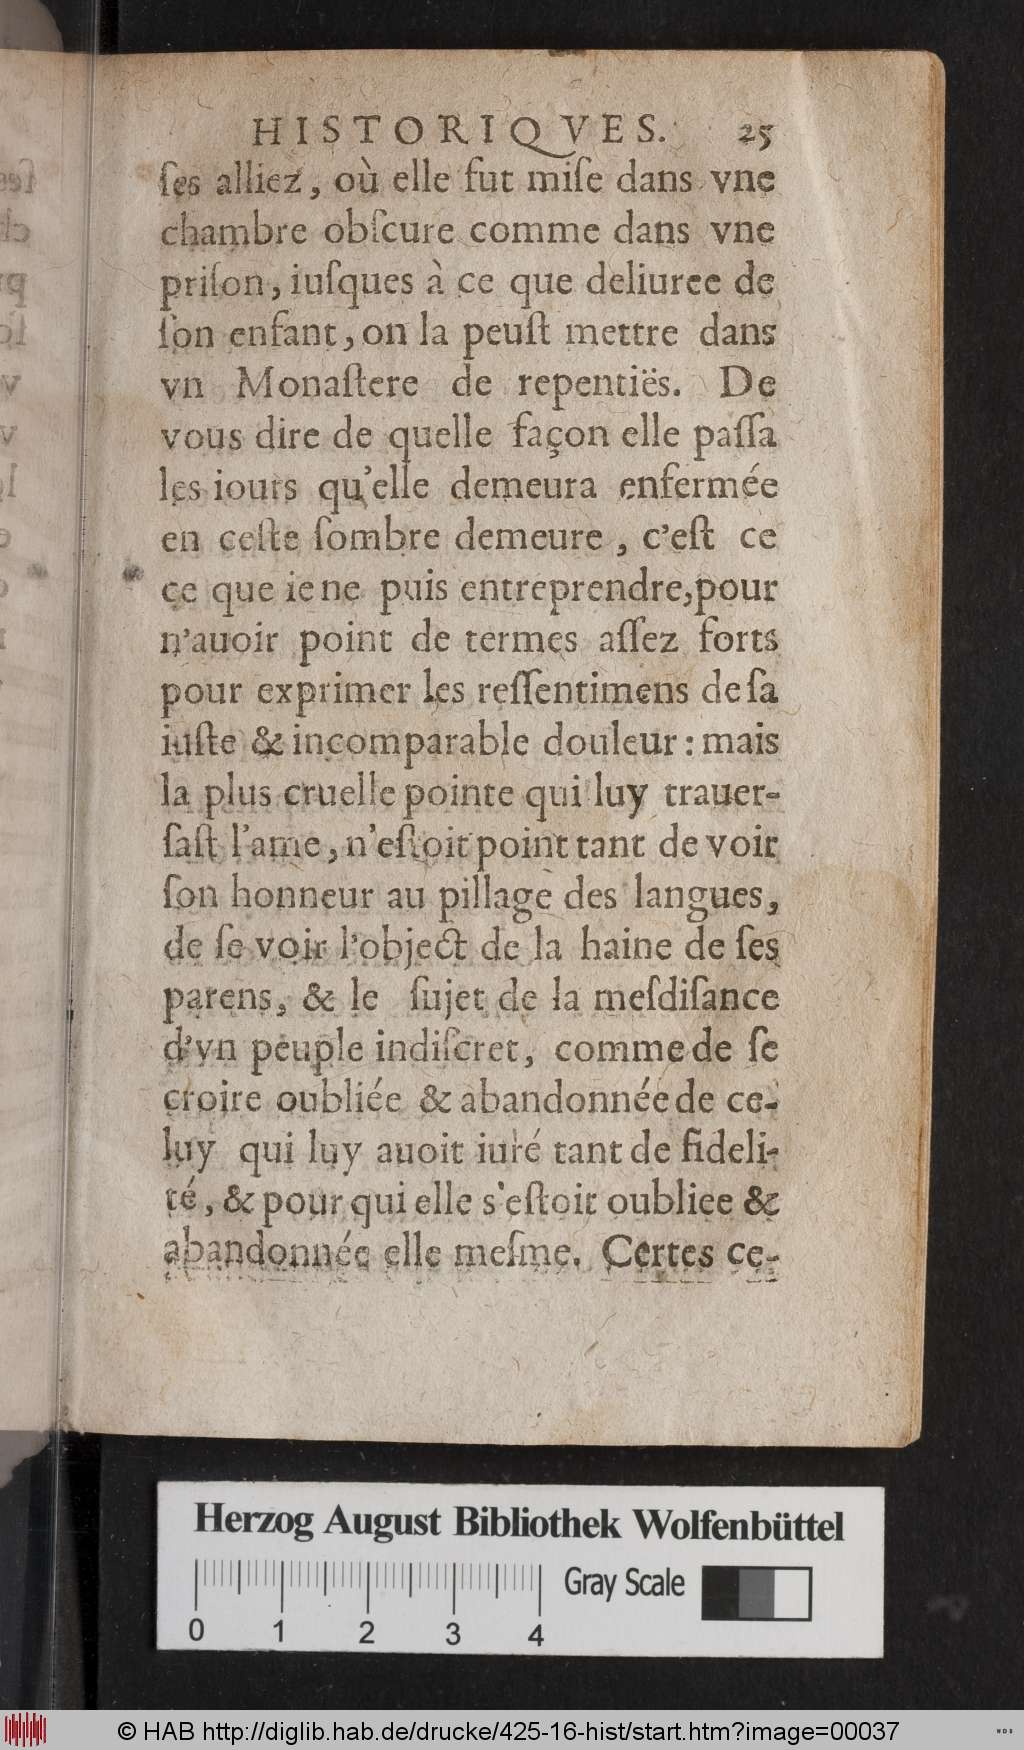 HISTORIQVES. 25
ſes alliez, où elle fut miſe dans vne
chambre obſcure comme dans vne
priſon, iuſques à ce que deliuree de
ſon enfant, on la peuſt mettre dans
vn Monaſtere de repentiës. De
vous dire de quelle façon elle paſſa
les iours qu'elle demeura enfermée
en ceſte ſombre demeure, c'eſt ce
ce que ie ne puis entreprendre, pour
n'auoir point de termes aſſez forts
pour exprimer les reſſentimens de ſa
iuſte & incomparable douleur: mais
la plus cruelle pointe qui luy trauer-
ſaſt l'ame, n'eſtoit point tant de voir
ſon honneur au pillage des langues,
de ſe voir l'object de la haine de ſes
parens, & le ſujet de la meſdiſance
d'vn peuple indiſcret, comme de ſe
croire oubliée & abandonnée de ce-
luy qui luy auoit iuré tant de fideli-
té, & pour qui elle s'eſtoit oubliee &
abandonnée elle meſme. Certes ce-
Herzog August Bibliothek Wolfenbüttel
Gray Scale
0 1 2 3 4
© HAB http://diglib.hab.de/drucke/425-16-hist/start.htm?image=00037